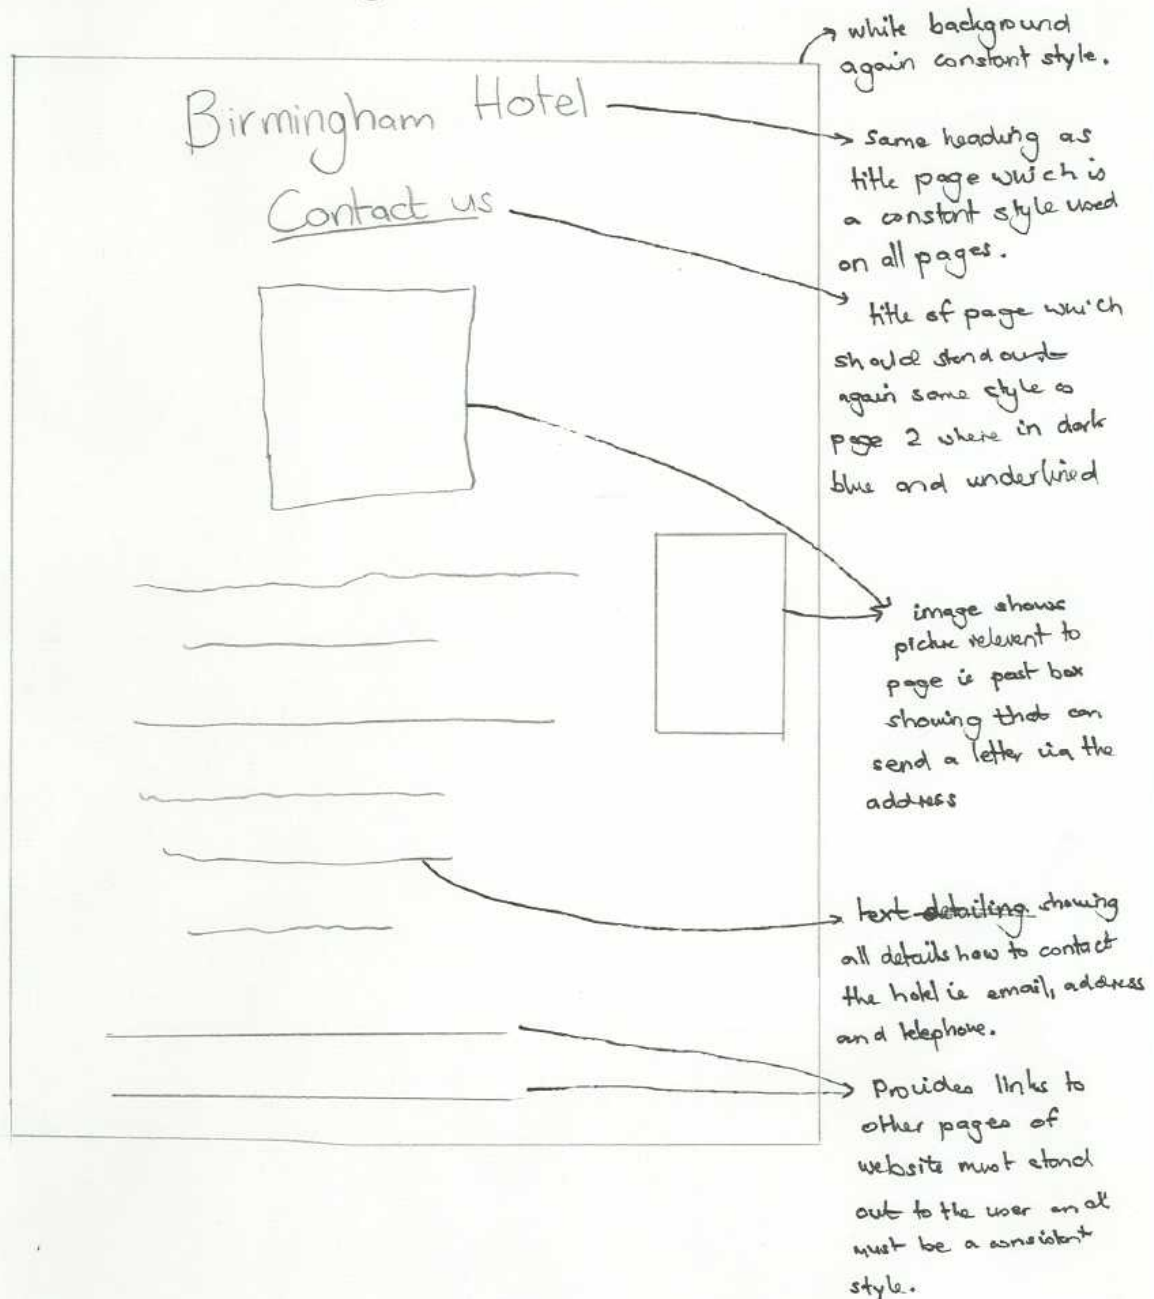 Birmingham Hotel
Contact us
white background
again constant style.
same heading as
title page which is
a constant style used
on all pages.
title of page which
should stand out
again same style as
page 2 where in dark
blue and underlined
image shows
picture relevent to
page ie post box
showing that can
send a letter via the
address
text detailing showing
all details how to contact
the hotel ie email, address
and telephone.
Provides links to
other pages of
website must stand
out to the user and
must be a consistent
style.